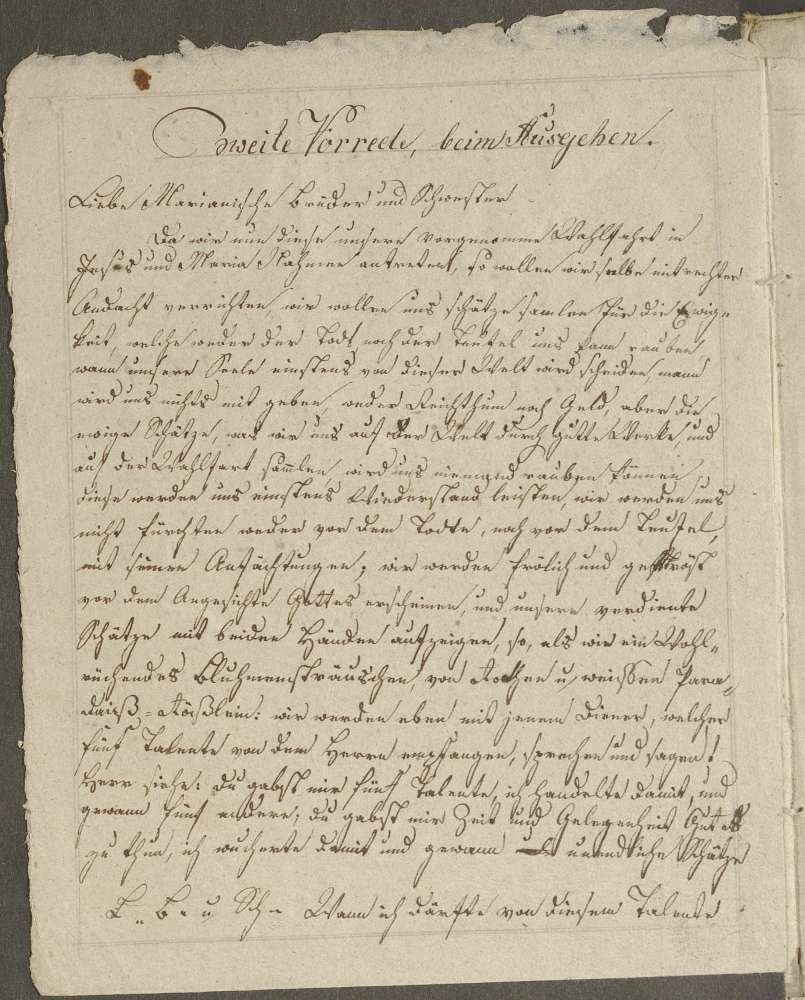 Zweite Vorrede, beim Ausgehen.
Liebe Marianische Brüder und Schwester
Da wir nun diese unsere vorgenomme Wahlfahrt in
Jesus und Maria Nahmen antreten, so wollen wir selbe mit rechter
Andacht verrichten, wir wollen uns schätze samlen für die Ewig„
keit, welche weder der Todt noch der Teufel uns kann rauben,
wann unsere Seele einstens von dieser Welt wird scheiden, mann
wird uns nichts mit geben, weder Reichthum noch Geld, aber die
ewige Schätze, was wir uns auf der Welt durch gutte Werke, und
auf der Wahlfart sammlen, wird uns niemand rauben können
diese werden uns einstens Wiederstand leisten, wir werden uns
nicht fürchten weder vor dem Todte, noch vor dem Teufel,
mit seinen Anfächtungen; wir werden frölich und getröst
vor dem Angesichte Gottes erscheinen, und unsere verdiente
Schätze mit beiden Händen aufzeigen, so, als wie ein Wohl„
rüchendes Bluhmensträuschen, von Rothen u weissen Para„
daiß=Rößlein: wir werden eben mit jenem Diener, welcher
fünf Talente von dem Herrn empfangen, sprechen und sagen!
Herr siehe: du gabst mir fünf Talente, ich handelte damit, und
gewann fünf andere; du gabst mir Zeit und Gelegenheit Gutes
zu thun, ich wucherte damit und gewann unendliche Schätze
L. B. u Sch. Wann ich därffte von diesem Talente